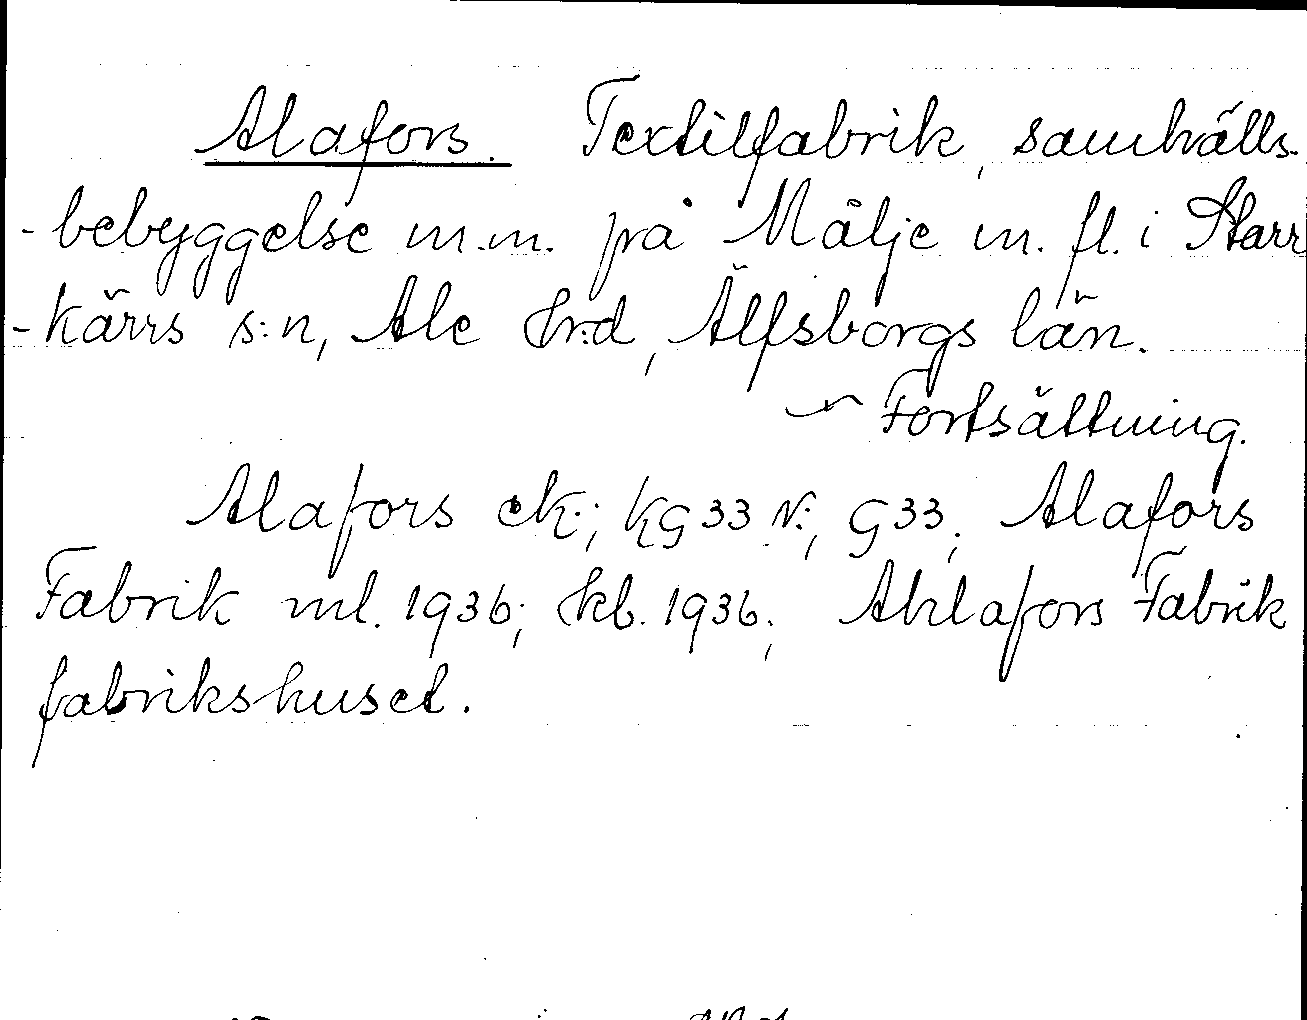 Alafors. Textilfabrik, samhälls-
-bebyggelse m.m. på Mälje m. fl. i Starr
-kärrs s:n, Ale hrd, Älfsborgs län.
~ Fortsättning.
Alafors ek.; KG33 N:, G33; Alafors
Fabrik ml. 1936; kb. 1936; Ahlafors Fabrik
fabrikshuset.